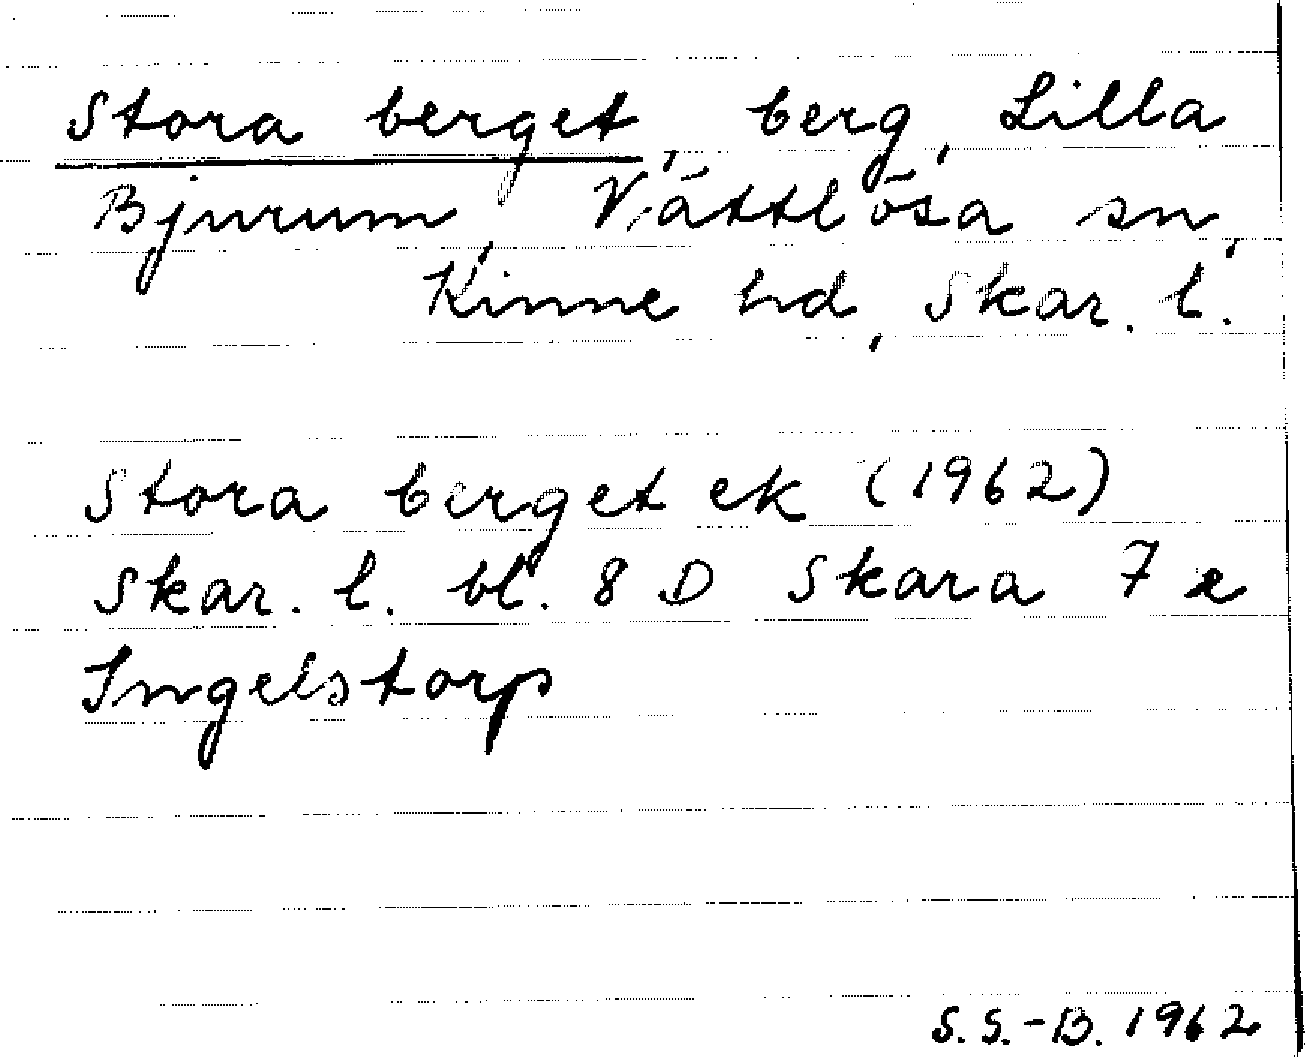 Stora berget, berg, Lilla
Bjurum, Vättlösa sn,
Kinne hd, Skar. l.
Stora berget ek (1962)
Skar. l. bl. 8 D Skara 7 e
Ingelstorp
S. S.-B. 1962